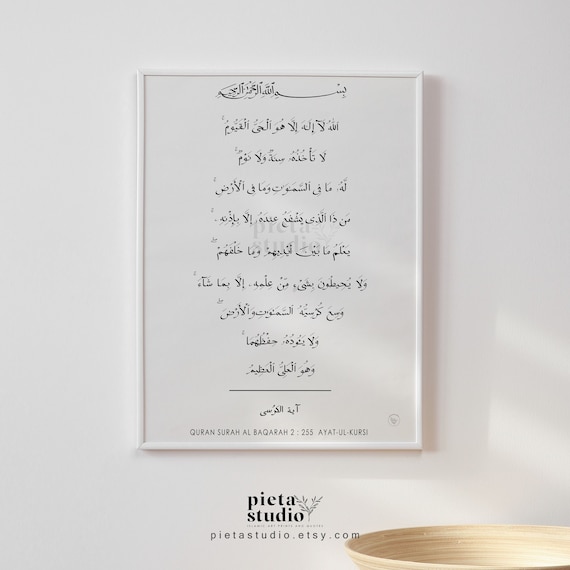 بِسْمِ ٱللَّهِ ٱلرَّحْمَٰنِ ٱلرَّحِيمِ
ٱللَّهُ لَآ إِلَٰهَ إِلَّا هُوَ ٱلْحَىُّ ٱلْقَيُّومُ ۚ
لَا تَأْخُذُهُۥ سِنَةٌ وَلَا نَوْمٌ ۚ
لَّهُۥ مَا فِى ٱلسَّمَٰوَٰتِ وَمَا فِى ٱلْأَرْضِ ۗ
مَن ذَا ٱلَّذِى يَشْفَعُ عِندَهُۥٓ إِلَّا بِإِذْنِهِۦ ۚ
يَعْلَمُ مَا بَيْنَ أَيْدِيهِمْ وَمَا خَلْفَهُمْ ۖ
وَلَا يُحِيطُونَ بِشَىْءٍ مِّنْ عِلْمِهِۦٓ إِلَّا بِمَا شَآءَ ۚ
وَسِعَ كُرْسِيُّهُ ٱلسَّمَٰوَٰتِ وَٱلْأَرْضَ ۖ
وَلَا يَـُٔودُهُۥ حِفْظُهُمَا ۚ
وَهُوَ ٱلْعَلِىُّ ٱلْعَظِيمُ
آية الكرسى
QURAN SURAH AL BAQARAH 2 : 255 AYAT-UL-KURSI
pieta
studio
pieta
studio
ISLAMIC ART PRINTS AND QUOTES
pietastudio.etsy.com